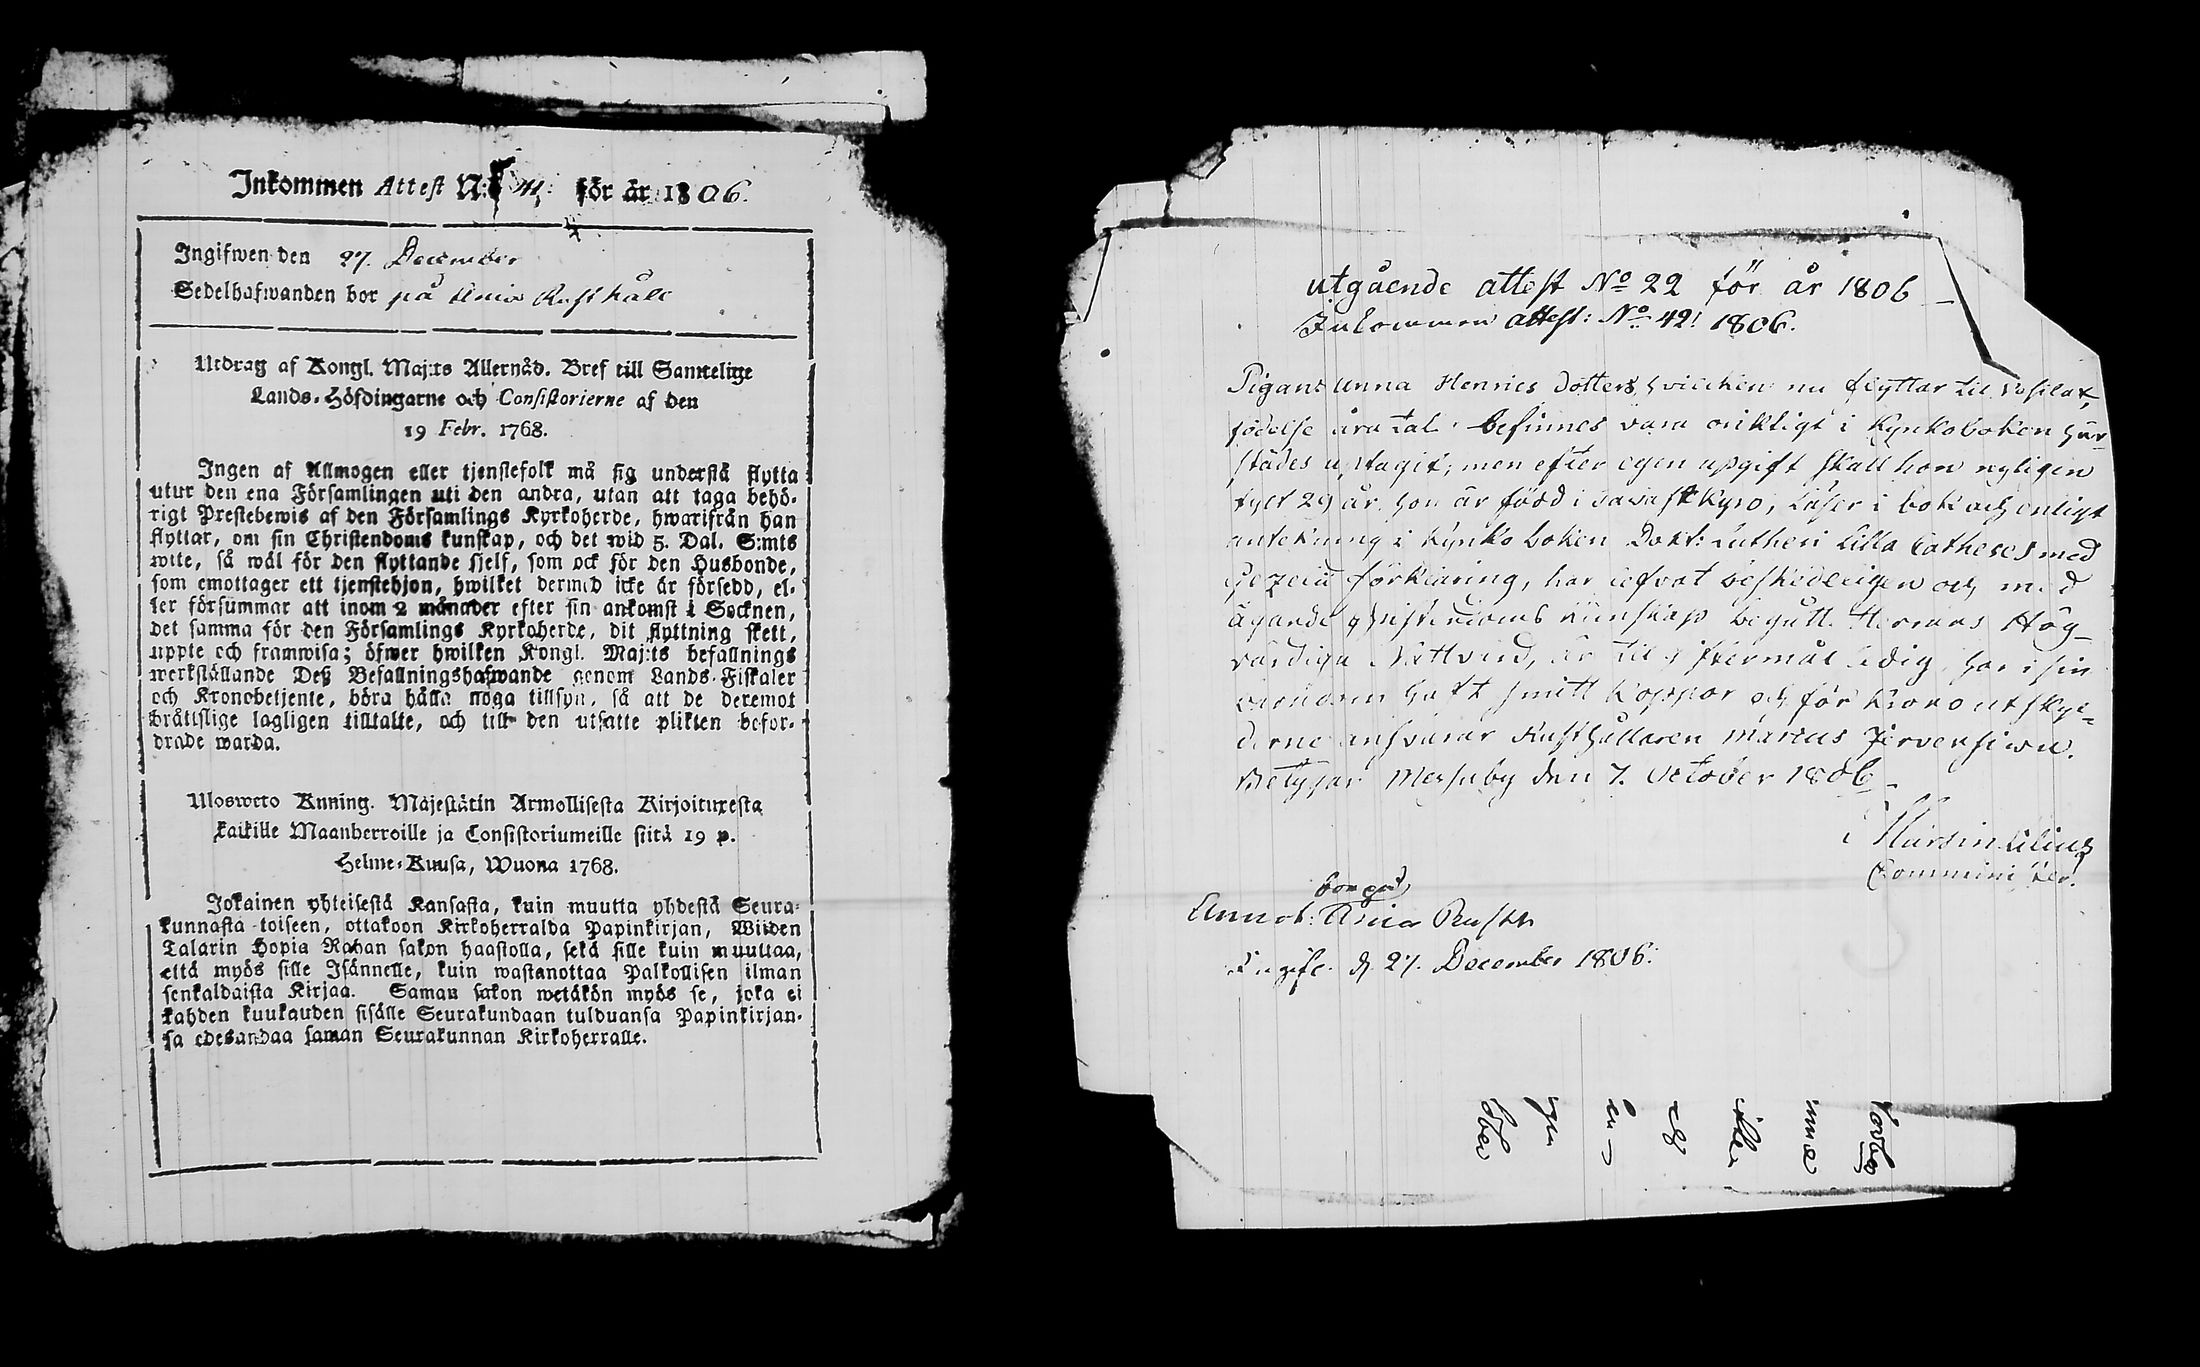 Inkommen Attest N: för år 1806.
Ingifwen den 27. December
Sedelhafwanden bor på Rusthåll
Utdrag af Kongl. Maj:ts Allernåd. Bref till Samtelige
Lands-Höfdingarne och Consistorierne af den
19 Febr. 1768.
Ingen af Allmogen eller tjenstefolk må sig understå flytta
utur den ena Församlingen uti den andra, utan att taga behö-
rigt Prestebewis af den Församlings Kyrkoherde, hwarifrån han
flyttar, om sin Christendoms kunskap, och det wid 5. Dal. S:mts
wite, så wäl för den flyttande sjelf, som ock för den Husbonde,
som emottager ett tjenstehjon, hwilket dermed icke är försedd, el-
ler försummar att inom 2 månader efter sin ankomst i Socknen,
det samma för den Församlings Kyrkoherde, dit flyttning skett,
uppte och framwisa; öfwer hwilken Kongl. Maj:ts befallnings
werkställande Deß Befallningshafwande genom Lands-Fiskaler
och Kronobetjente, böra hålla noga tillsyn, så att de deremot
bråttslige lagligen tilltalte, och till den utsatte plikten befor-
drade warda.
Ulosweto Kuning. Majestätin Armollisesta Kirjoituxesta
kaikille Maanherroille ja Consistoriumeille siitä 19 p.
Helme-Kuusa, Wuona 1768.
Jokainen yhteisestä Kansasta, kuin muutta yhdestä Seura-
kunnasta toiseen, ottakoon Kirkoherralda Papinkirjan, Wiiden
Talarin Hopia Rahan sakon haastolla, sekä sille kuin muuttaa,
että myös sille Isännelle, kuin wastanottaa Palkollisen ilman
senkaldaista Kirjaa. Saman sakon wetäkön myös se, joka ei
kahden kuukauden sisälle Seurakundaan tulduansa Papinkirjan-
sa edesandaa saman Seurakunnan Kirkoherralle.
utgående attest No 22 för år 1806
Inkommen attest: No 42! 1806.
Pigan Anna Henrics Dotters, hvilcken nu flyttar til
födelse åra tal befinnes vara oriktigt i Kyrkoboken här-
städes uptagit; men efter egen upgift skall hon nyligen
fylt 29 år. hon är född i Tavastkyro, Läser i bok och enligt
antekning i Kyrko boken Doct: Lutheri Lilla Catheces med
förklaring, har lefvat beskedeligen och med
ägande Christendoms kunskap begått Herrans Hög-
värdiga Nattvard, är til ägtenskap ledig, har i sin
barndom haft smitt Koppor och för Krono utskyl-
derne ansvarar Rusthållaren Marcus
Betygar den 7. October 1806
Comminister.
bor på
Annot:
Ingifv. d. 27. December 1806.